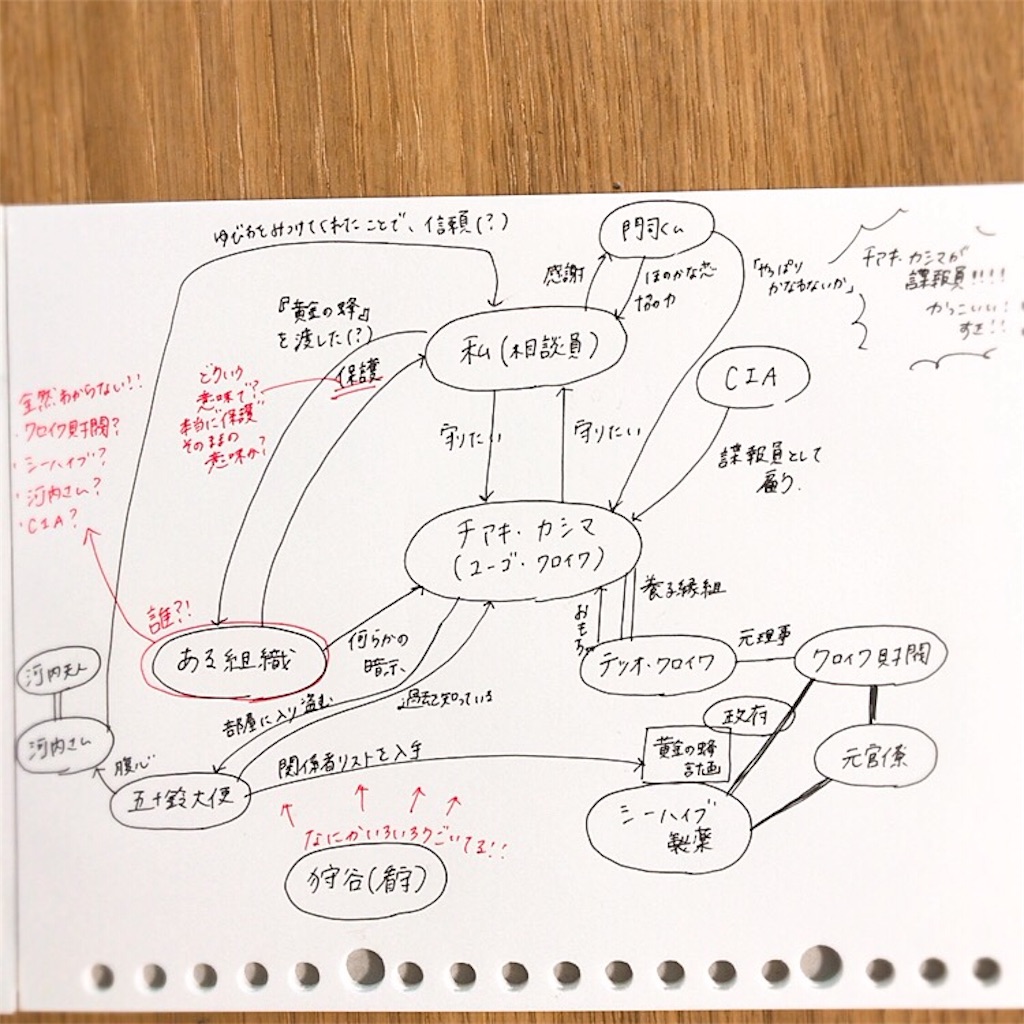 ゆびわをみつけてくれたことで、信頼(?)
門司くん
感謝
ほのかな恋
協力
「やっぱり
かなわないか」
チアキ・カシマが
諜報員!!!!
かっこいい!
すき!!
『黄金の蜂』
を渡した(?)
私(相談員)
保護
どういう
意味で?
本当に"保護"
そのままの
意味か?
CIA
諜報員として
雇う.
全然わからない!!
・クロイワ財閥?
・シーハイブ?
・河内さん?
・CIA?
守りたい
守りたい
チアキ・カシマ
(ユーゴ・クロイワ)
誰?!
ある組織
何らかの
暗示
養子縁組
テツオ・クロイワ
元理事
クロイワ財閥
河内夫人
河内さん
腹心
部屋に入り盗む
過去を知っている
政府
黄金の蜂
計画
元官僚
関係者リストを入手
五十鈴大使
シーハイブ
製薬
なにかいろいろうごいてる!!
狩谷(看守)